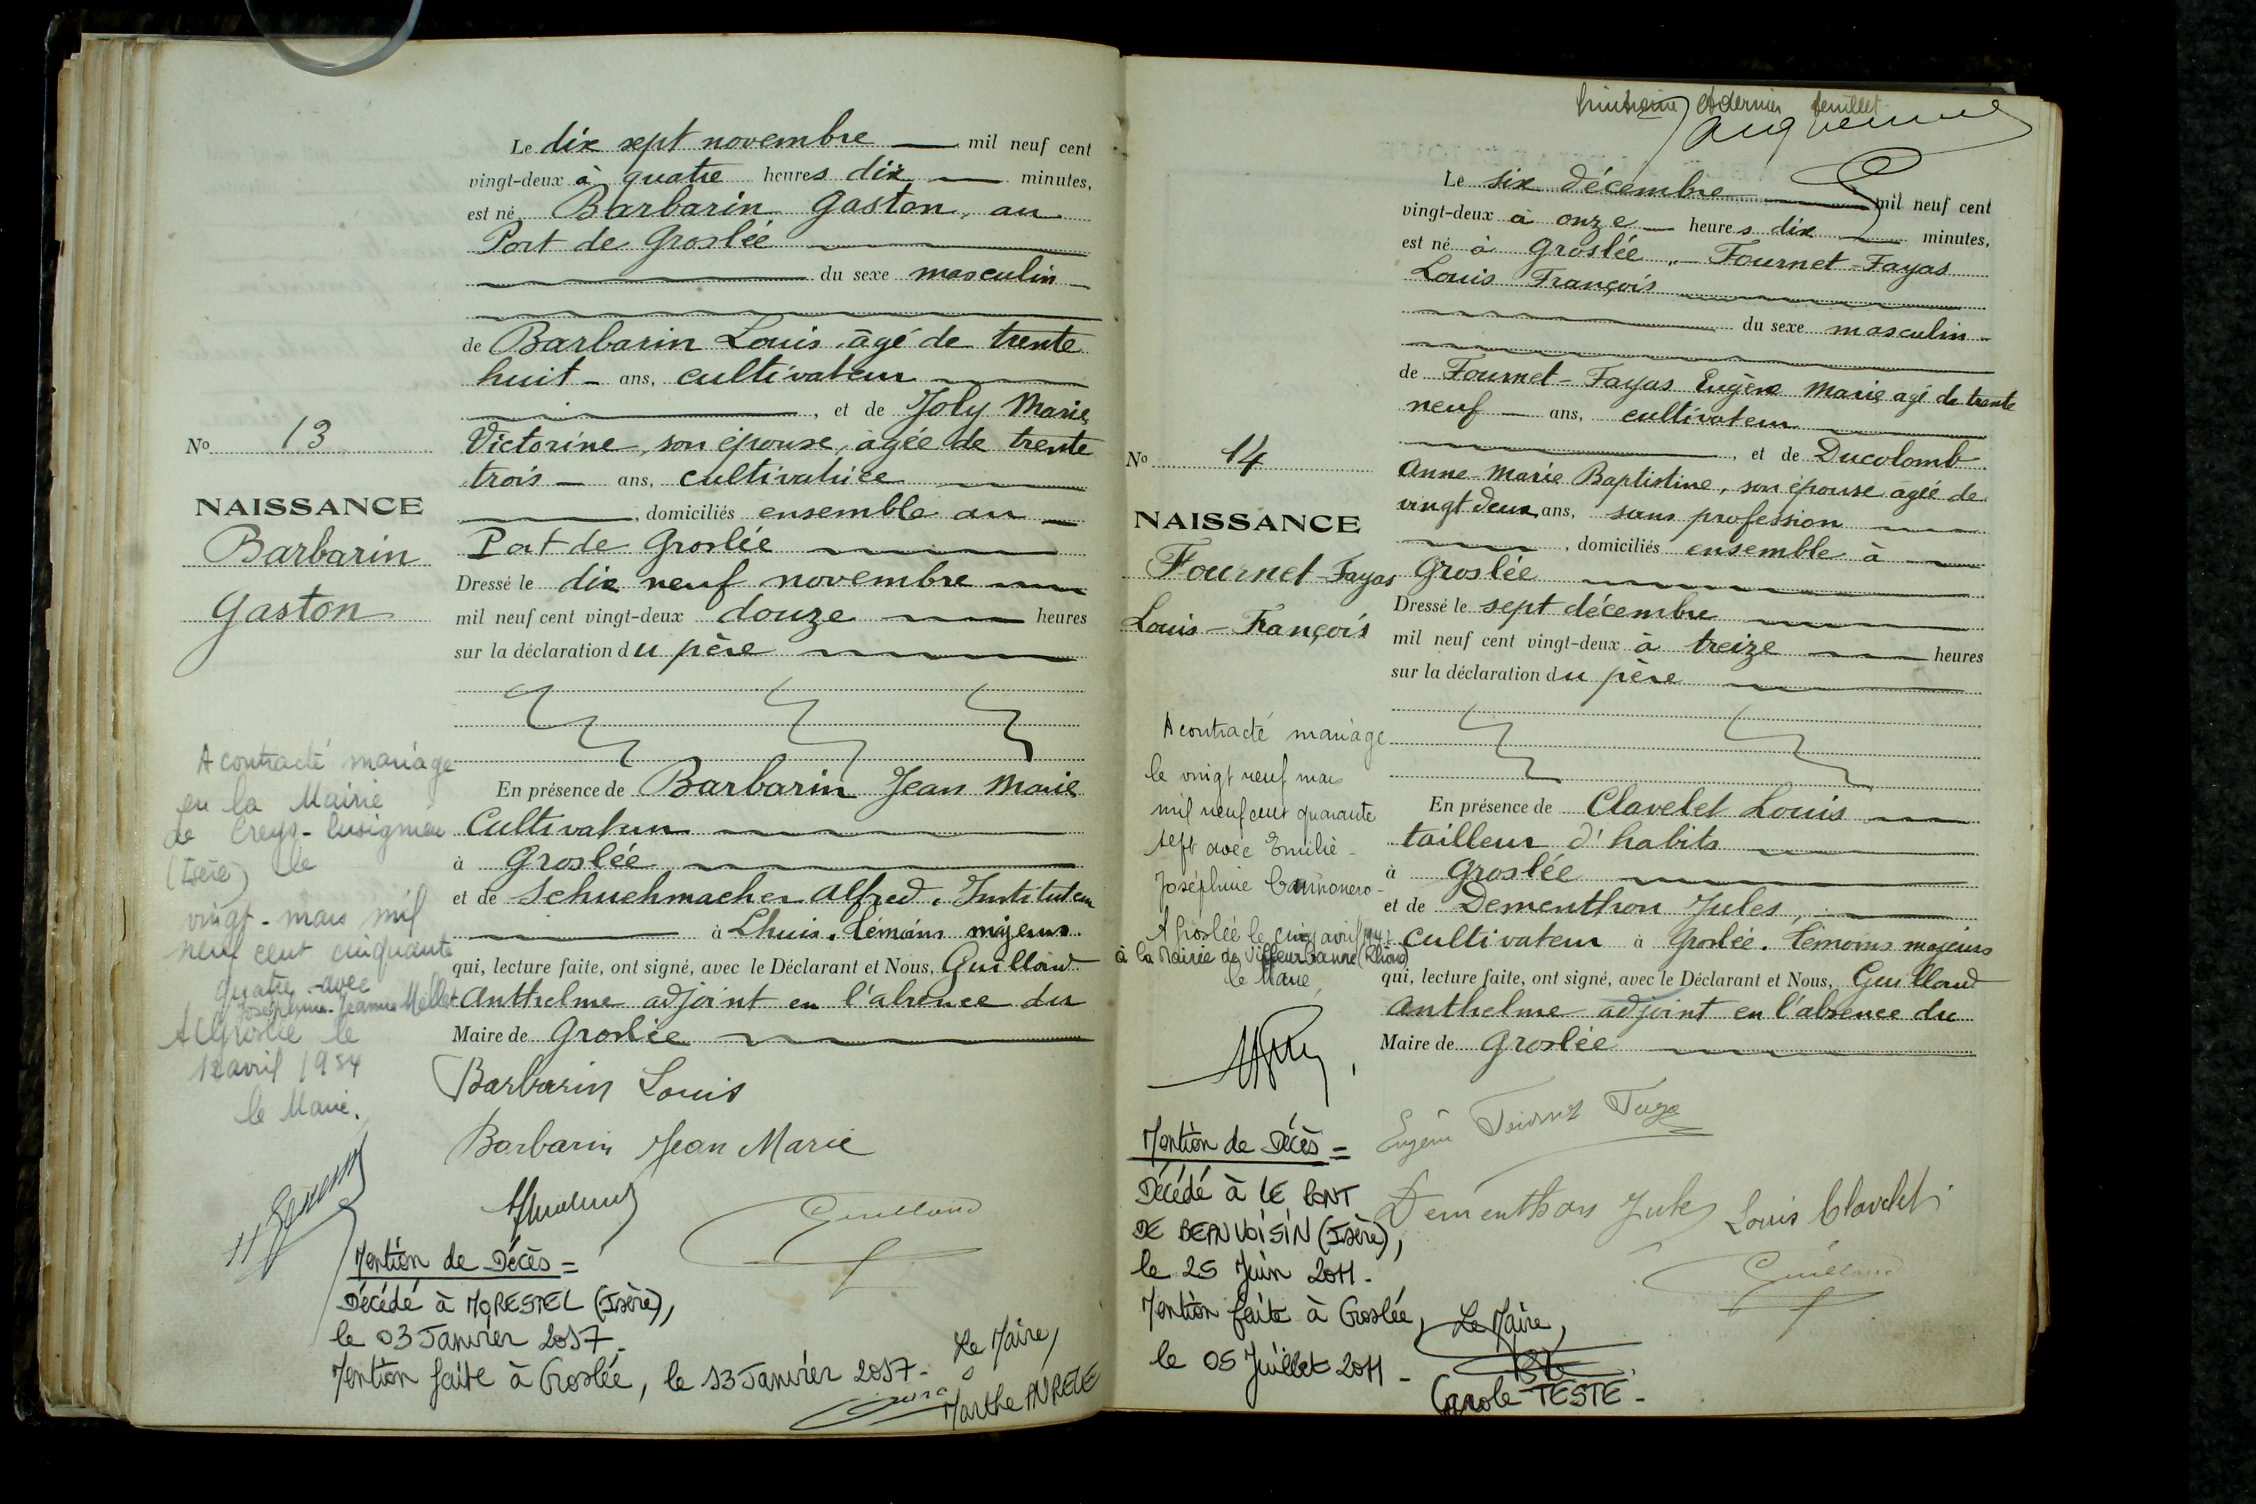 Le dix sept novembre mil neuf cent
vingt-deux à quatre heures dix minutes,
est né Barbarin Gaston, au
Port de Groslée
du sexe masculin
de Barbarin Louis âgé de trente
huit ans, cultivateur
, et de Joly Marie
Victorine, son épouse, âgée de trente
trois ans, cultivatrice
, domiciliés ensemble au
Port de Groslée
Dressé le dix neuf novembre
mil neuf cent vingt-deux douze heures
sur la déclaration du père
En présence de Barbarin Jean Marie
Cultivateur
à Groslée
et de Schuehmacher Alfred, Instituteur
à Lhuis. témoins majeurs.
qui, lecture faite, ont signé, avec le Déclarant et Nous, Guilland
Anthelme adjoint en l'absence du
Maire de Groslée
Barbarin Louis
Barbarin Jean Marie
Guilland
No 13
NAISSANCE
Barbarin
Gaston
A contracté mariage
en la Mairie
de Creys-Pusignieu
(Isère) le
vingt-mars mil
neuf cent cinquante
quatre avec
Joséphine-Jeanne Mellet
A Groslée le
12 avril 1954
le Maire.
Mention de Décès =
Décédé à MORESTEL (Isère),
le 03 Janvier 2017.
Mention faite à Groslée, le 13 Janvier 2017.
Le Maire,
Marthe
et dernier feuillet
Le six décembre mil neuf cent
vingt-deux à onze heures dix minutes,
est né à Groslée, Fournet-Fayas
Louis François
du sexe masculin
de Fournet-Fayas Eugène Marie agé de trente
neuf ans, cultivateur
, et de Ducolomb
Anne Marie Baptistine, son épouse agée de
vingt deux ans, sans profession
, domiciliés ensemble à
Groslée
Dressé le sept décembre
mil neuf cent vingt-deux à treize heures
sur la déclaration du père
En présence de Clavelet Louis
tailleur d'habits
à Groslée
et de Dementhon Jules,
cultivateur à Groslée. témoins majeurs
qui, lecture faite, ont signé, avec le Déclarant et Nous, Guilland
Anthelme adjoint en l'absence du
Maire de Groslée
Eugène
Dementhon Jules Louis Clavelet
Guilland
No 14
NAISSANCE
Fournet-Fayas
Louis-François
A contracté mariage
le vingt neuf mars
mil neuf cent quarante
sept avec Emilie-
Joséphine
A Groslée le cinq avril
à la Mairie de Villeurbanne (Rhône)
le Maire,
Mention de Décès =
Décédé à LE PONT
DE BEAUVOISIN (Isère),
le 25 Juin 2011.
Mention faite à Groslée,
le 05 Juillet 2011.
Le Maire,
Carole TESTE.